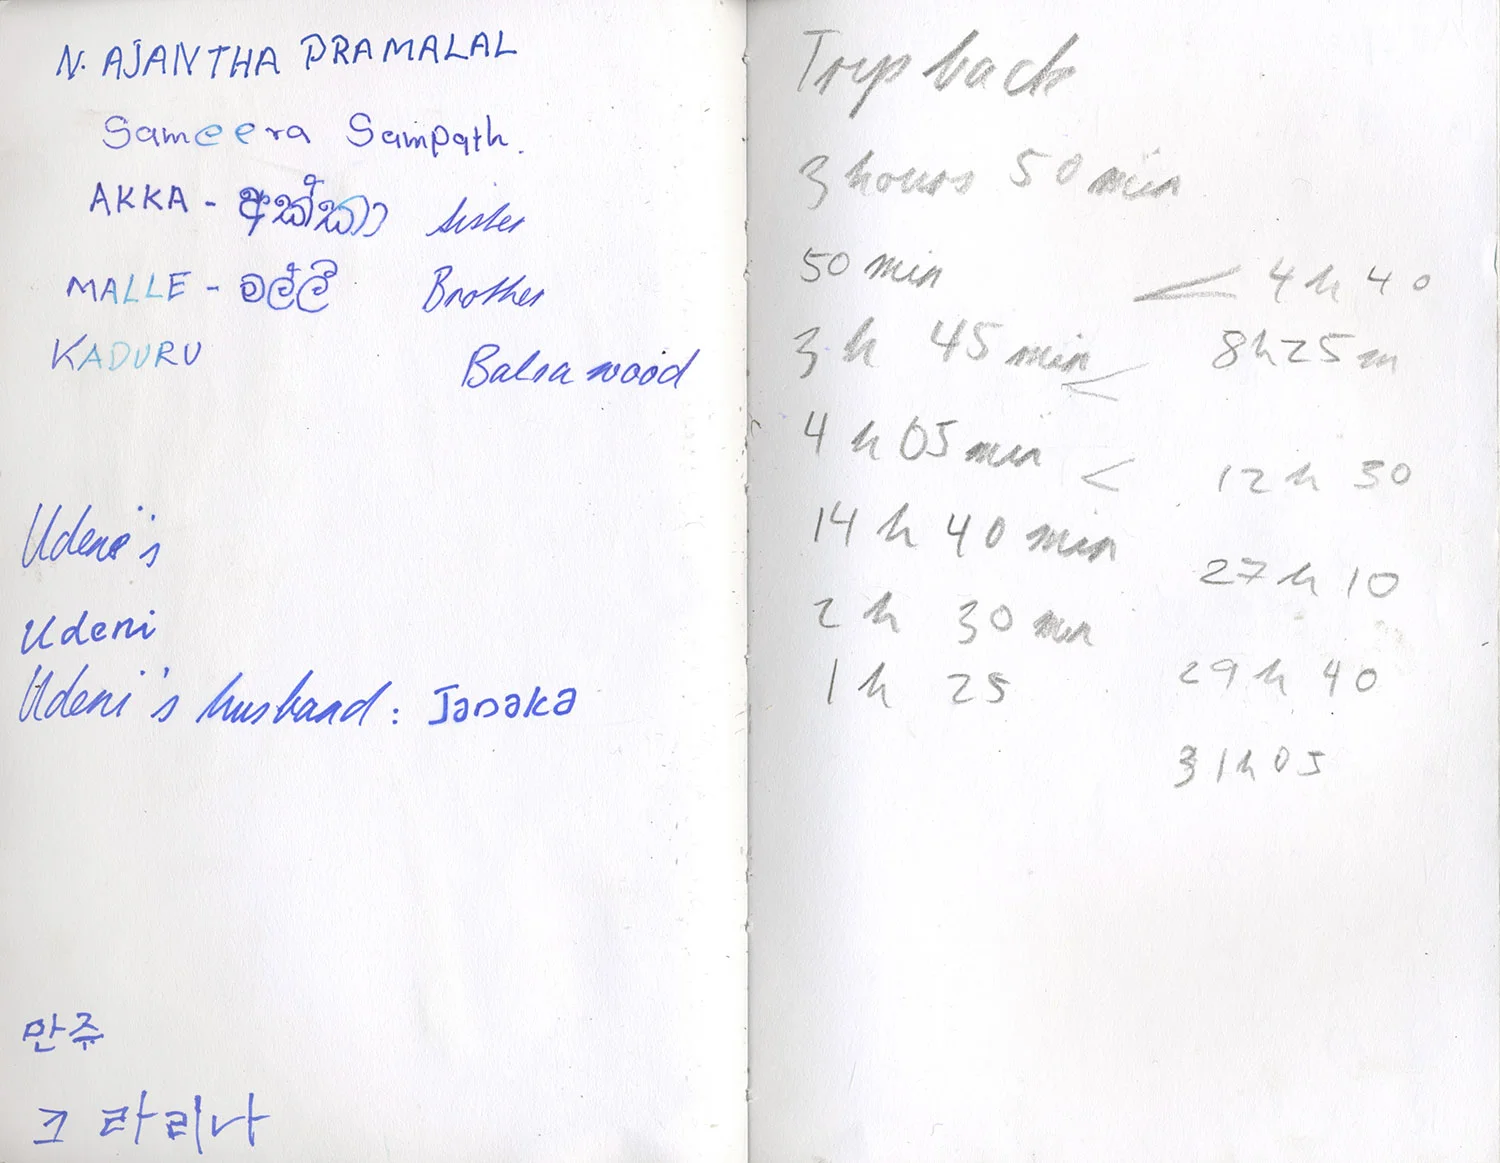 N. AJANTHA PRAMALAL
Sameera Sampath.
AKKA - අක්කා sister
MALLE - මල්ලී Brother
KADURU Balsa wood
Udene's
Udeni
Udeni's husband: Janaka
만쥬
그 라리나
Trip back
3 hours 50 min
50 min < 4 h 40
3 h 45 min < 8h25m
4 h 05 min < 12 h 30
14 h 40 min 27 h 10
2 h 30 min
1 h 25 29 h 40
31h05